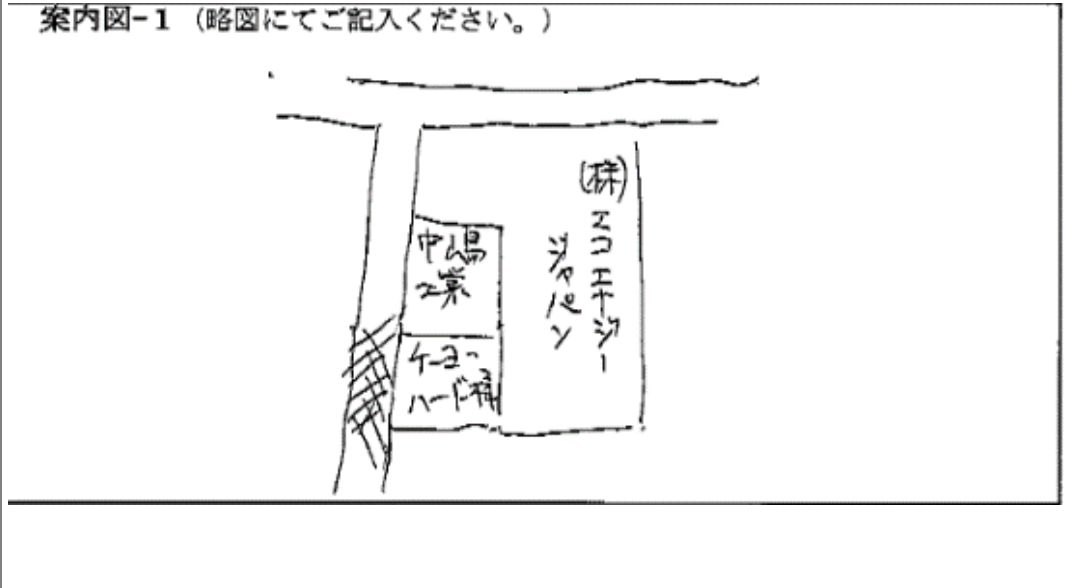 案内図-1 (略図にてご記入ください。)
(株)エコエナジー
ジャパン
中嶋
工業
ケーヨー
ハード